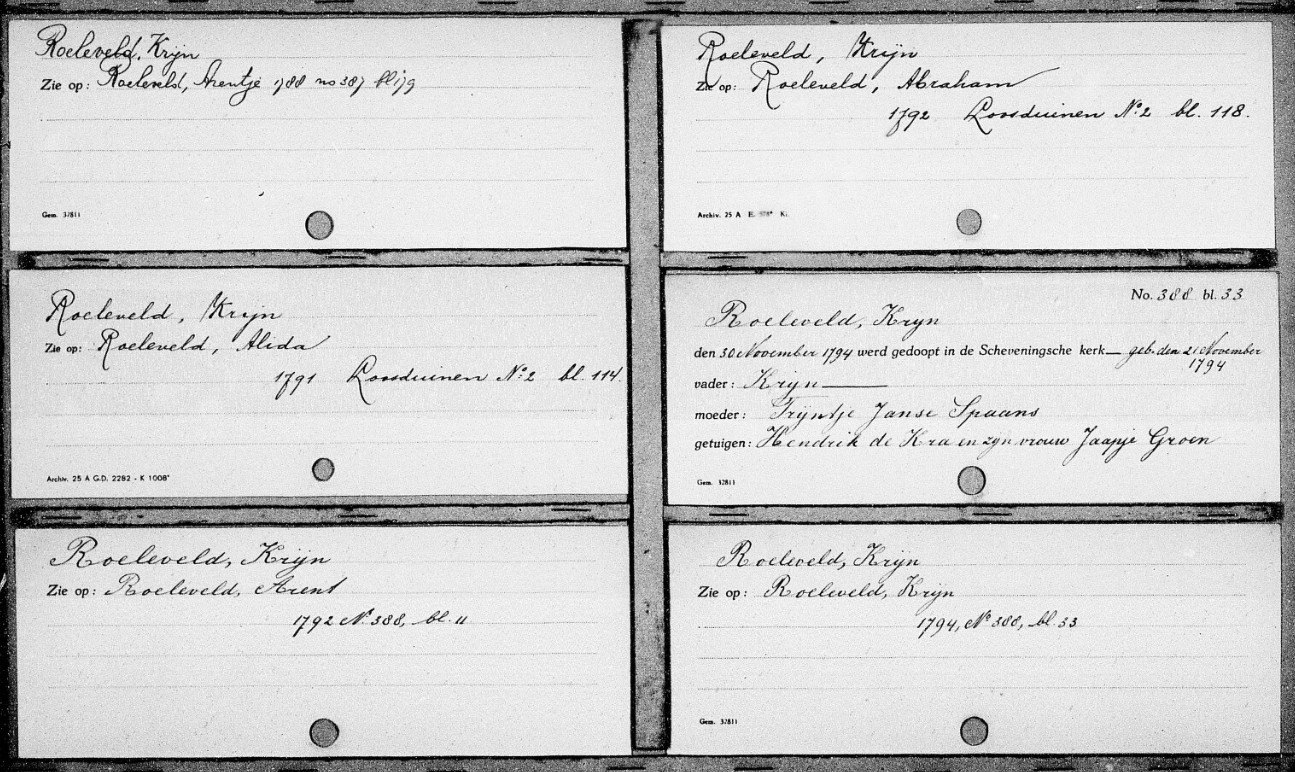 Roeleveld, Krijn
Zie op: Roeleveld, Arentje 1788 no 387 bl 179
Gem. 32811
Roeleveld, Krijn
Zie op: Roeleveld, Alida
1791 Loosduinen No. 2 bl. 114.
Archiv. 25 A G.D. 2282 - K 1008*
Roeleveld, Krijn
Zie op: Roeleveld, Arent
1792 No. 388, bl. 11
Roeleveld, Krijn
Zie op: Roeleveld, Abraham
1792 Loosduinen No. 2 bl. 118.
Archiv. 25 A E. Ki.
No. 388 bl. 33
Roeleveld, Kryn
den 30 November 1794 werd gedoopt in de Scheveningsche kerk — geb. den 21 November
1794
vader: Kryn —
moeder: Tryntje Janse Spaans
getuigen: Hendrik de Kra en zyn vrouw Jaapje Groen
Gem. 32811
Roeleveld, Krijn
Zie op: Roeleveld, Krijn
1794, No 388, bl. 33
Gem. 32811